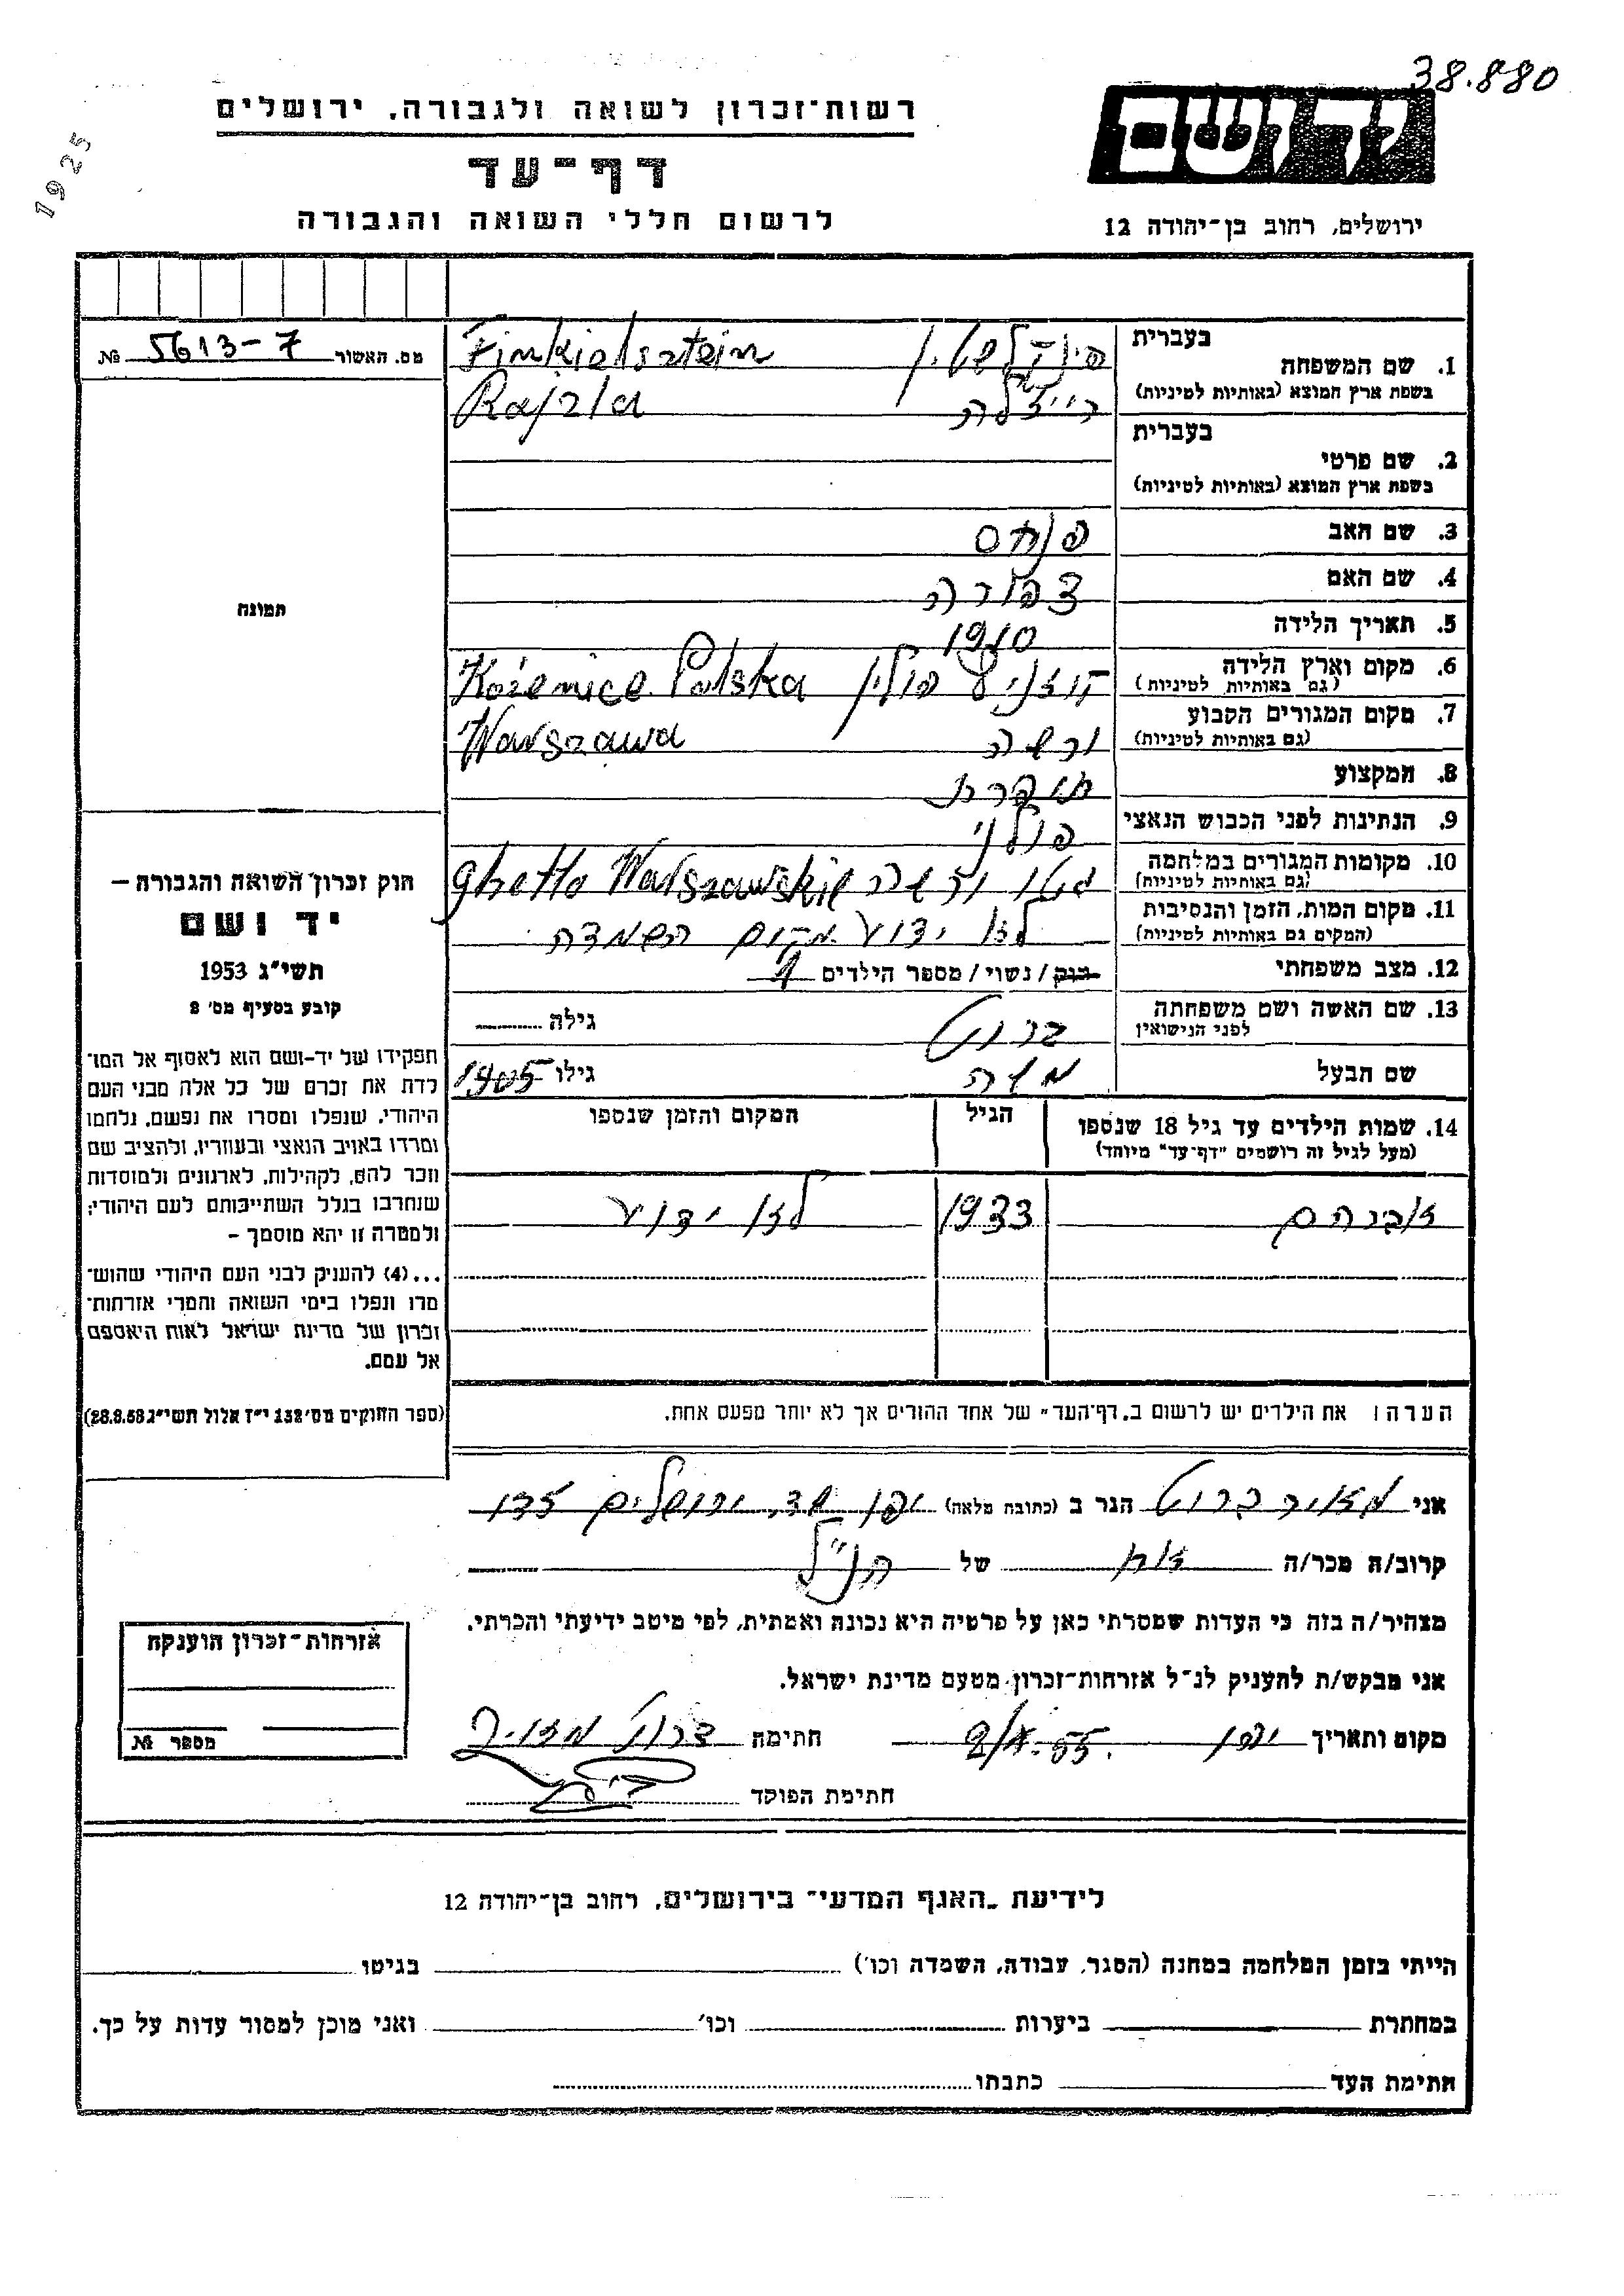 38.880
1925
רשות־זכרון לשואה ולגבורה, ירושלים
דף־עד
לרשום חללי השואה והגבורה
יד ושם
ירושלים, רחוב בן־יהודה 12
מס. האשור 5613-7 №
בעברית
1. שם המשפחה פינקלשטין Finkielsztein
בשפת ארץ המוצא (באותיות לטיניות)
רייזלה Rajzla
בעברית
2. שם פרטי
בשפת ארץ המוצא (באותיות לטיניות)
3. שם האב פנחס
4. שם האם צפורה
5. תאריך הלידה 1910
6. מקום וארץ הלידה קוזניץ פולין Kożenice Polska
(גם באותיות לטיניות)
7. מקום המגורים הקבוע ורשה Warszawa
(גם באותיות לטיניות)
8. המקצוע תופרת
9. הנתינות לפני הכבוש הנאצי פולני
10. מקומות המגורים במלחמה גטו ורשה Ghetto Warszawskie
(גם באותיות לטיניות)
11. מקום המות, הזמן והנסיבות לא ידוע מקום השמדה
(המקום גם באותיות לטיניות)
12. מצב משפחתי רוק / נשוי / מספר הילדים 1
13. שם האשה ושם משפחתה ברוט גילה
לפני הנישואין
שם הבעל משה גילו 1905
14. שמות הילדים עד גיל 18 שנספו הגיל המקום והזמן שנספו
(מעל לגיל זה רושמים "דף־עד" מיוחד)
אברהם 1933 לא ידוע
הערה: את הילדים יש לרשום ב„דף־העד" של אחד ההורים אך לא יותר מפעם אחת.
תמונה
חוק זכרון השואה והגבורה —
יד ושם
תשי"ג 1953
קובע בסעיף מס' 2
תפקידו של יד-ושם הוא לאסוף אל המו־
לדת את זכרם של כל אלה מבני העם
היהודי, שנפלו ומסרו את נפשם, נלחמו
ומרדו באויב הנאצי ובעוזריו, ולהציב שם
וזכר להם, לקהילות, לארגונים ולמוסדות
שנחרבו בגלל השתייכותם לעם היהודי;
ולמטרה זו יהא מוסמך –
...(4) להעניק לבני העם היהודי שהוש־
מדו ונפלו בימי השואה והמרי אזרחות־
זכרון של מדינת ישראל לאות היאספם
אל עמם.
(ספר החוקים מס' 132 י"ז אלול תשי"ג 28.8.53)
אני מאיר ברוט הגר ב (כתובת מלאה) יפו שד. ירושלים
קרוב/ה מכר/ה אח של הנ"ל
מצהיר/ה בזה כי העדות שמסרתי כאן על פרטיה היא נכונה ואמתית, לפי מיטב ידיעתי והכרתי.
אני מבקש/ת להעניק לנ"ל אזרחות־זכרון מטעם מדינת ישראל.
מקום ותאריך יפו חתימה ברוט מאיר
חתימת הפוקד
אזרחות־זכרון הוענקה
מספר №
לידיעת „האגף המדעי" בירושלים, רחוב בן־יהודה 12
הייתי בזמן המלחמה במחנה (הסגר, עבודה, השמדה וכו') בגיטו
במחתרת ביערות וכו' ואני מוכן למסור עדות על כך.
חתימת העד כתבתו